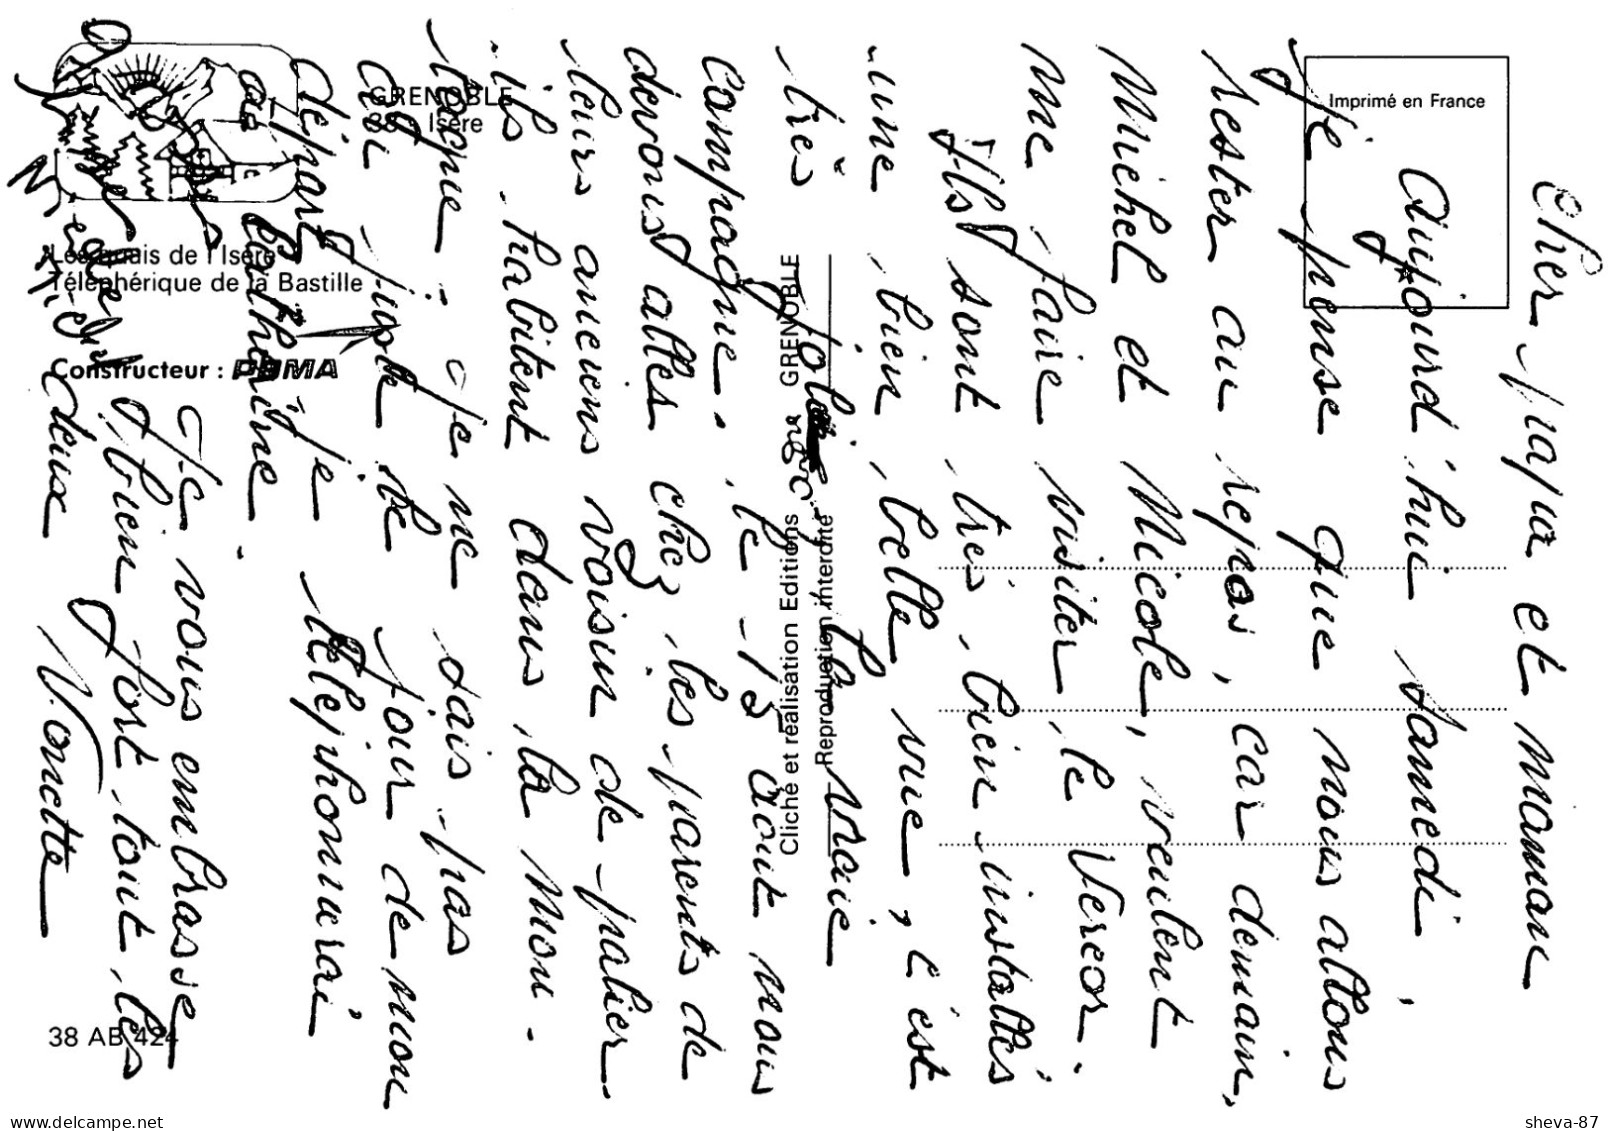 Cher papa et maman
Aujourd'hui samedi,
je pense que nous allons
rester au repos, car demain,
Michel et Nicole, veulent
me faire visiter le Vercor.
Ils sont très bien installés,
une bien belle vue, c'est
très joli la vraie
campagne. le 13 août nous
devons aller chez les parents de
leurs anciens voisin de palier
ils habitent dans la
Je ne sais pas
le jour de mon
départ je téléphonerai
à Catherine.
Je vous embrasse
bien fort tout les
deux Nonette
GRENOBLE
38 - Isère
Les quais de l'Isère
Téléphérique de la Bastille
Constructeur : POMA
38 AB 424
Cliché et réalisation Editions GRENOBLE
Reproduction interdite
Imprimé en France
www.delcampe.net
sheva-87